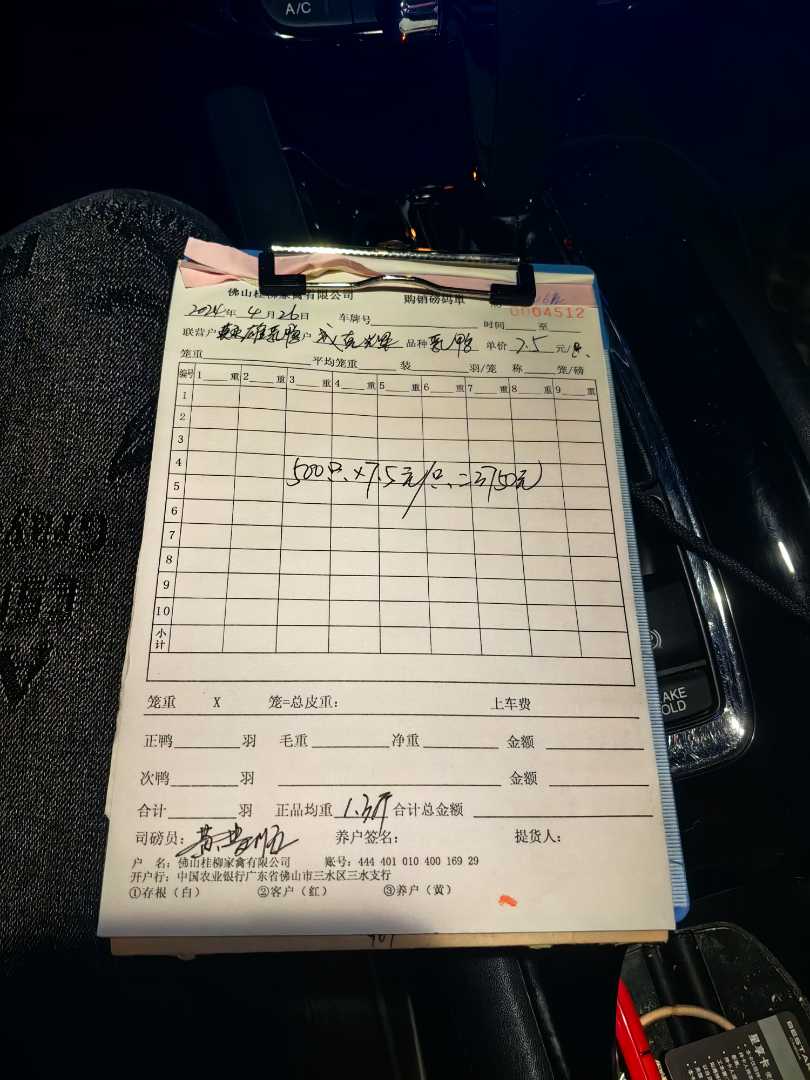 A/C
佛山桂柳家禽有限公司 购销磅码单
0004512
2024年 4月26日 车牌号 时间 至
联营户 雄乳鸭 户 品种 乳鸭 单价 7.5 元/只
笼重 平均笼重 装 羽/笼 称 笼/磅
编号 1 重 2 重 3 重 4 重 5 重 6 重 7 重 8 重 9 重
1
2
3
4
500只×7.5元/只=3750元
5
6
7
8
9
10
小计
笼重 X 笼=总皮重: 上车费
正鸭 羽 毛重 净重 金额
次鸭 羽 金额
合计 羽 正品均重 1.3斤 合计总金额
司磅员: 养户签名: 提货人:
户 名: 佛山桂柳家禽有限公司 账号: 444 401 010 400 169 29
开户行: 中国农业银行广东省佛山市三水区三水支行
①存根(白) ②客户(红) ③养户(黄)
AKE
OLD
BESTA
星享卡